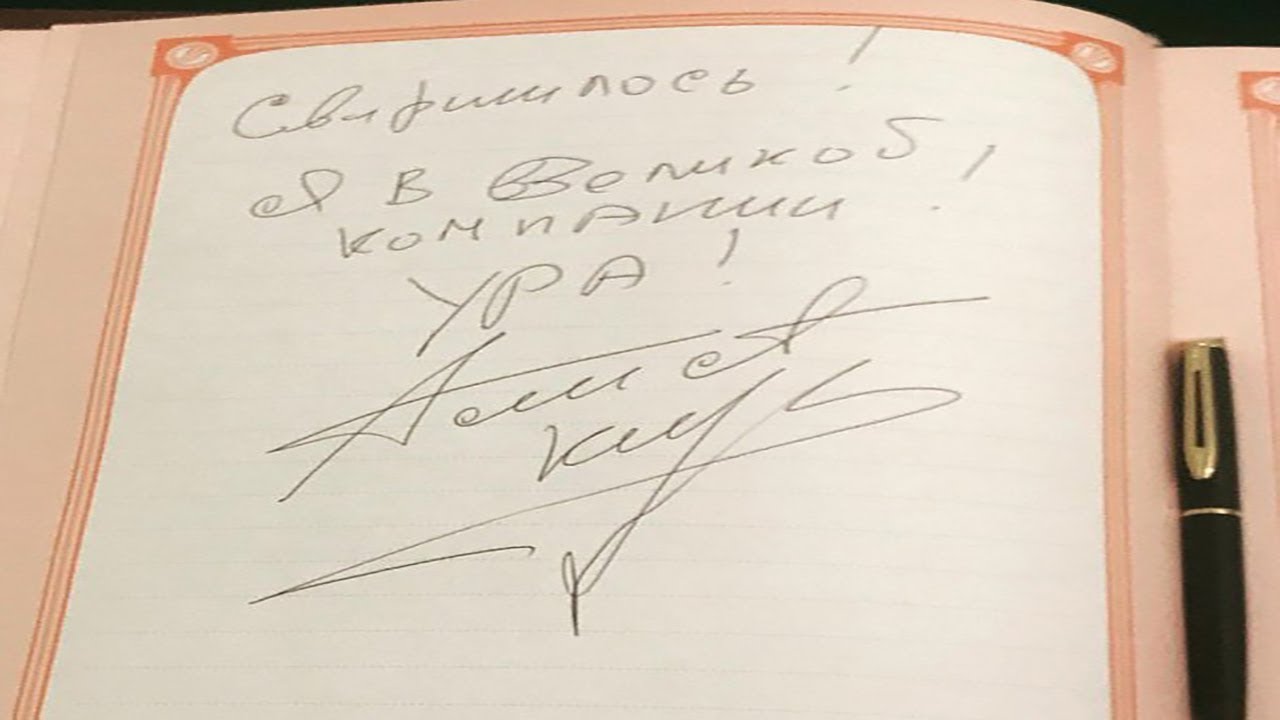 Свершилось!
Я в Великой
компании!
УРА!